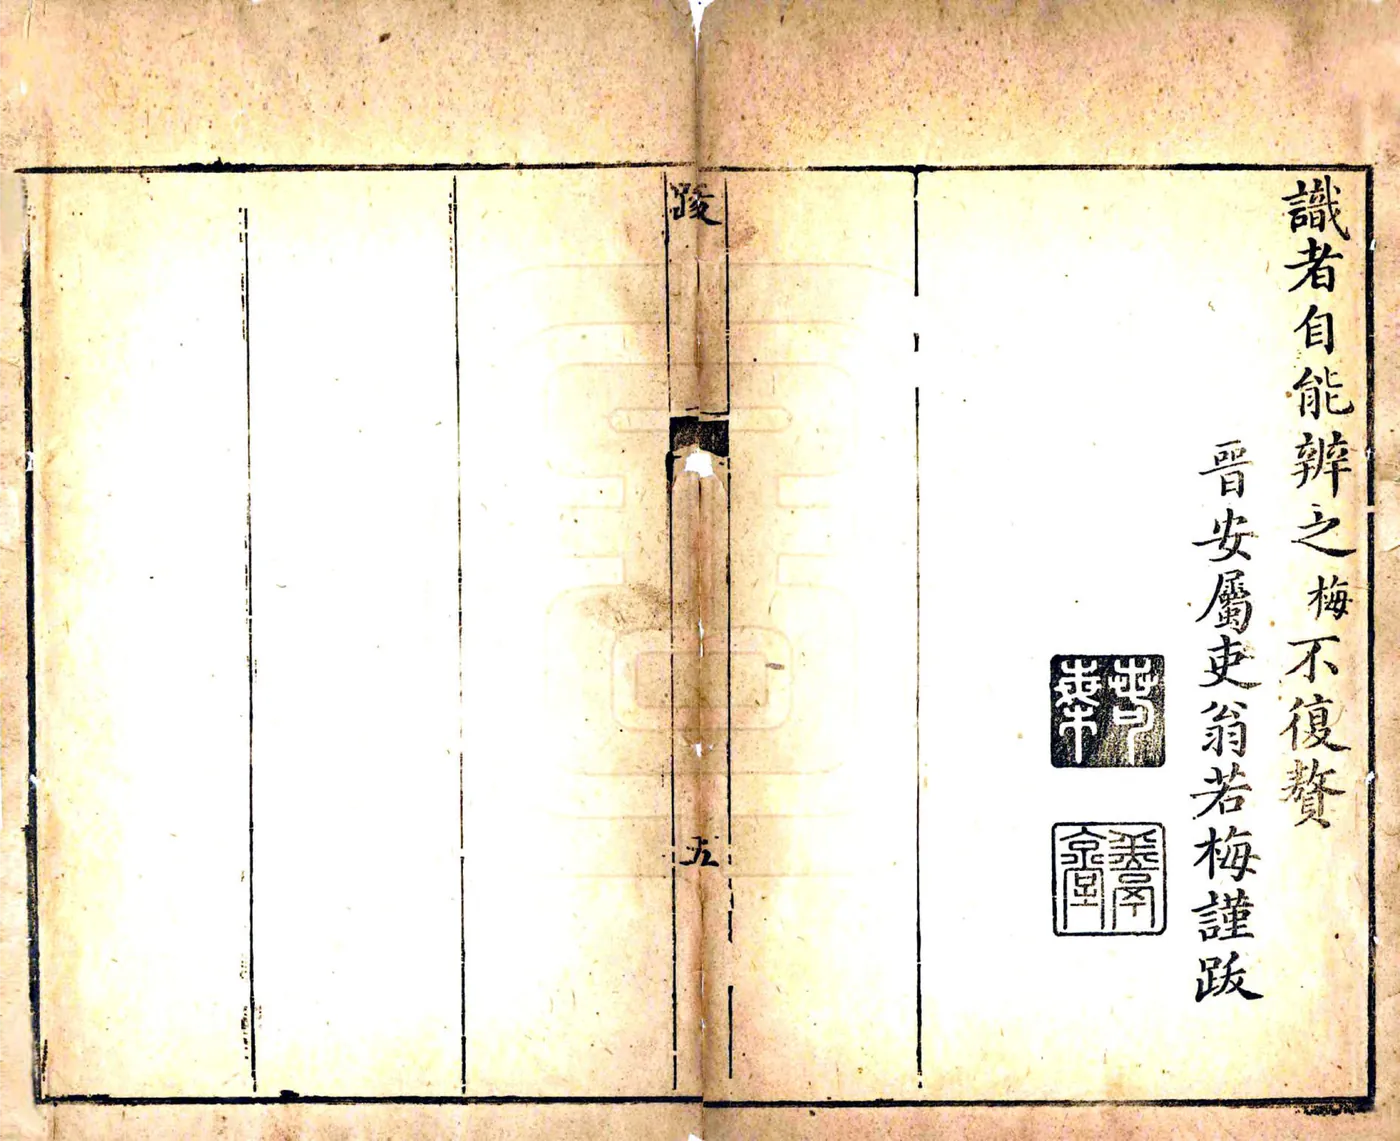 識者自能辨之梅不復贅
晉安屬吏翁若梅謹跋
跋
五